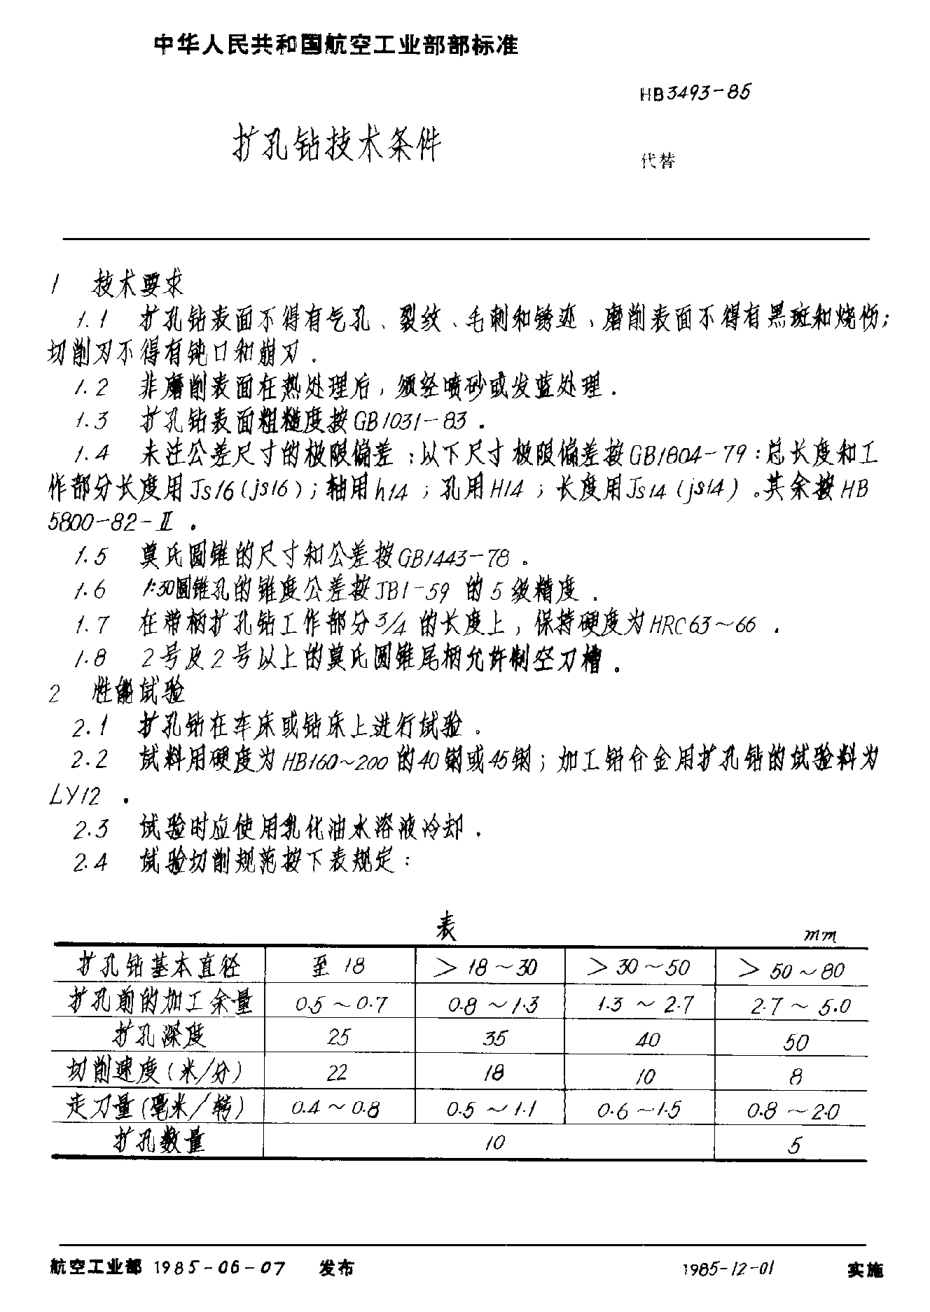 中华人民共和国航空工业部部标准
HB3493-85
扩孔钻技术条件
代替
1 技术要求
1.1 扩孔钻表面不得有气孔、裂纹、毛刺和锈迹、磨削表面不得有黑斑和烧伤;
切削刃不得有钝口和崩刃.
1.2 非磨削表面在热处理后,须经喷砂或发蓝处理.
1.3 扩孔钻表面粗糙度按GB1031-83.
1.4 未注公差尺寸的极限偏差:以下尺寸极限偏差按GB1804-79:总长度和工
作部分长度用Js16(js16);轴用h14;孔用H14;长度用Js14(js14)。其余按HB
5800-82-Ⅱ.
1.5 莫氏圆锥的尺寸和公差按GB1443-78。
1.6 1:30圆锥孔的锥度公差按JB1-59的5级精度.
1.7 在带柄扩孔钻工作部分3/4的长度上,保持硬度为HRC63~66.
1.8 2号及2号以上的莫氏圆锥尾柄允许制空刀槽.
2 性能试验
2.1 扩孔钻在车床或钻床上进行试验。
2.2 试料用硬度为HB160~200的40钢或45钢;加工铝合金用扩孔钻的试验料为
LY12.
2.3 试验时应使用乳化油水溶液冷却.
2.4 试验切削规范按下表规定:
表
mm
扩孔钻基本直径 至18 >18~30 >30~50 >50~80
扩孔前的加工余量 0.5~0.7 0.8~1.3 1.3~2.7 2.7~5.0
扩孔深度 25 35 40 50
切削速度(米/分) 22 18 10 8
走刀量(毫米/转) 0.4~0.8 0.5~1.1 0.6~1.5 0.8~2.0
扩孔数量 10 5
航空工业部 1985-06-07 发布 1985-12-01 实施